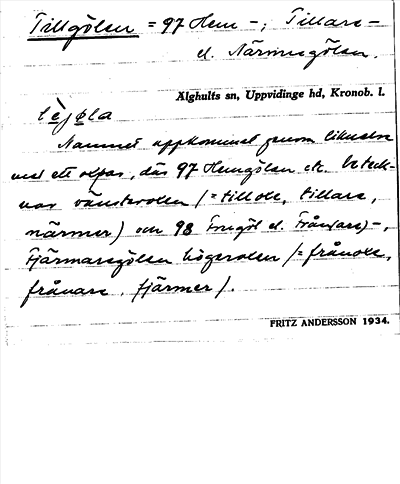 Tillgölen = 97 Hem -; Tillare -
el. Närmregölen.
Älghults sn, Uppvidinge hd, Kronob. l.
Namnet uppkommet genom liknelse
med ett oxpar, där 97 Hemgölen etc. beteck-
nar vänsteroxen (= tilloxe, tillare,
närmer) och 98 Fregöl el. Från(are)-,
Fjärmaregölen högeroxen (= frånoxe,
frånare, fjärmer).
FRITZ ANDERSSON 1934.